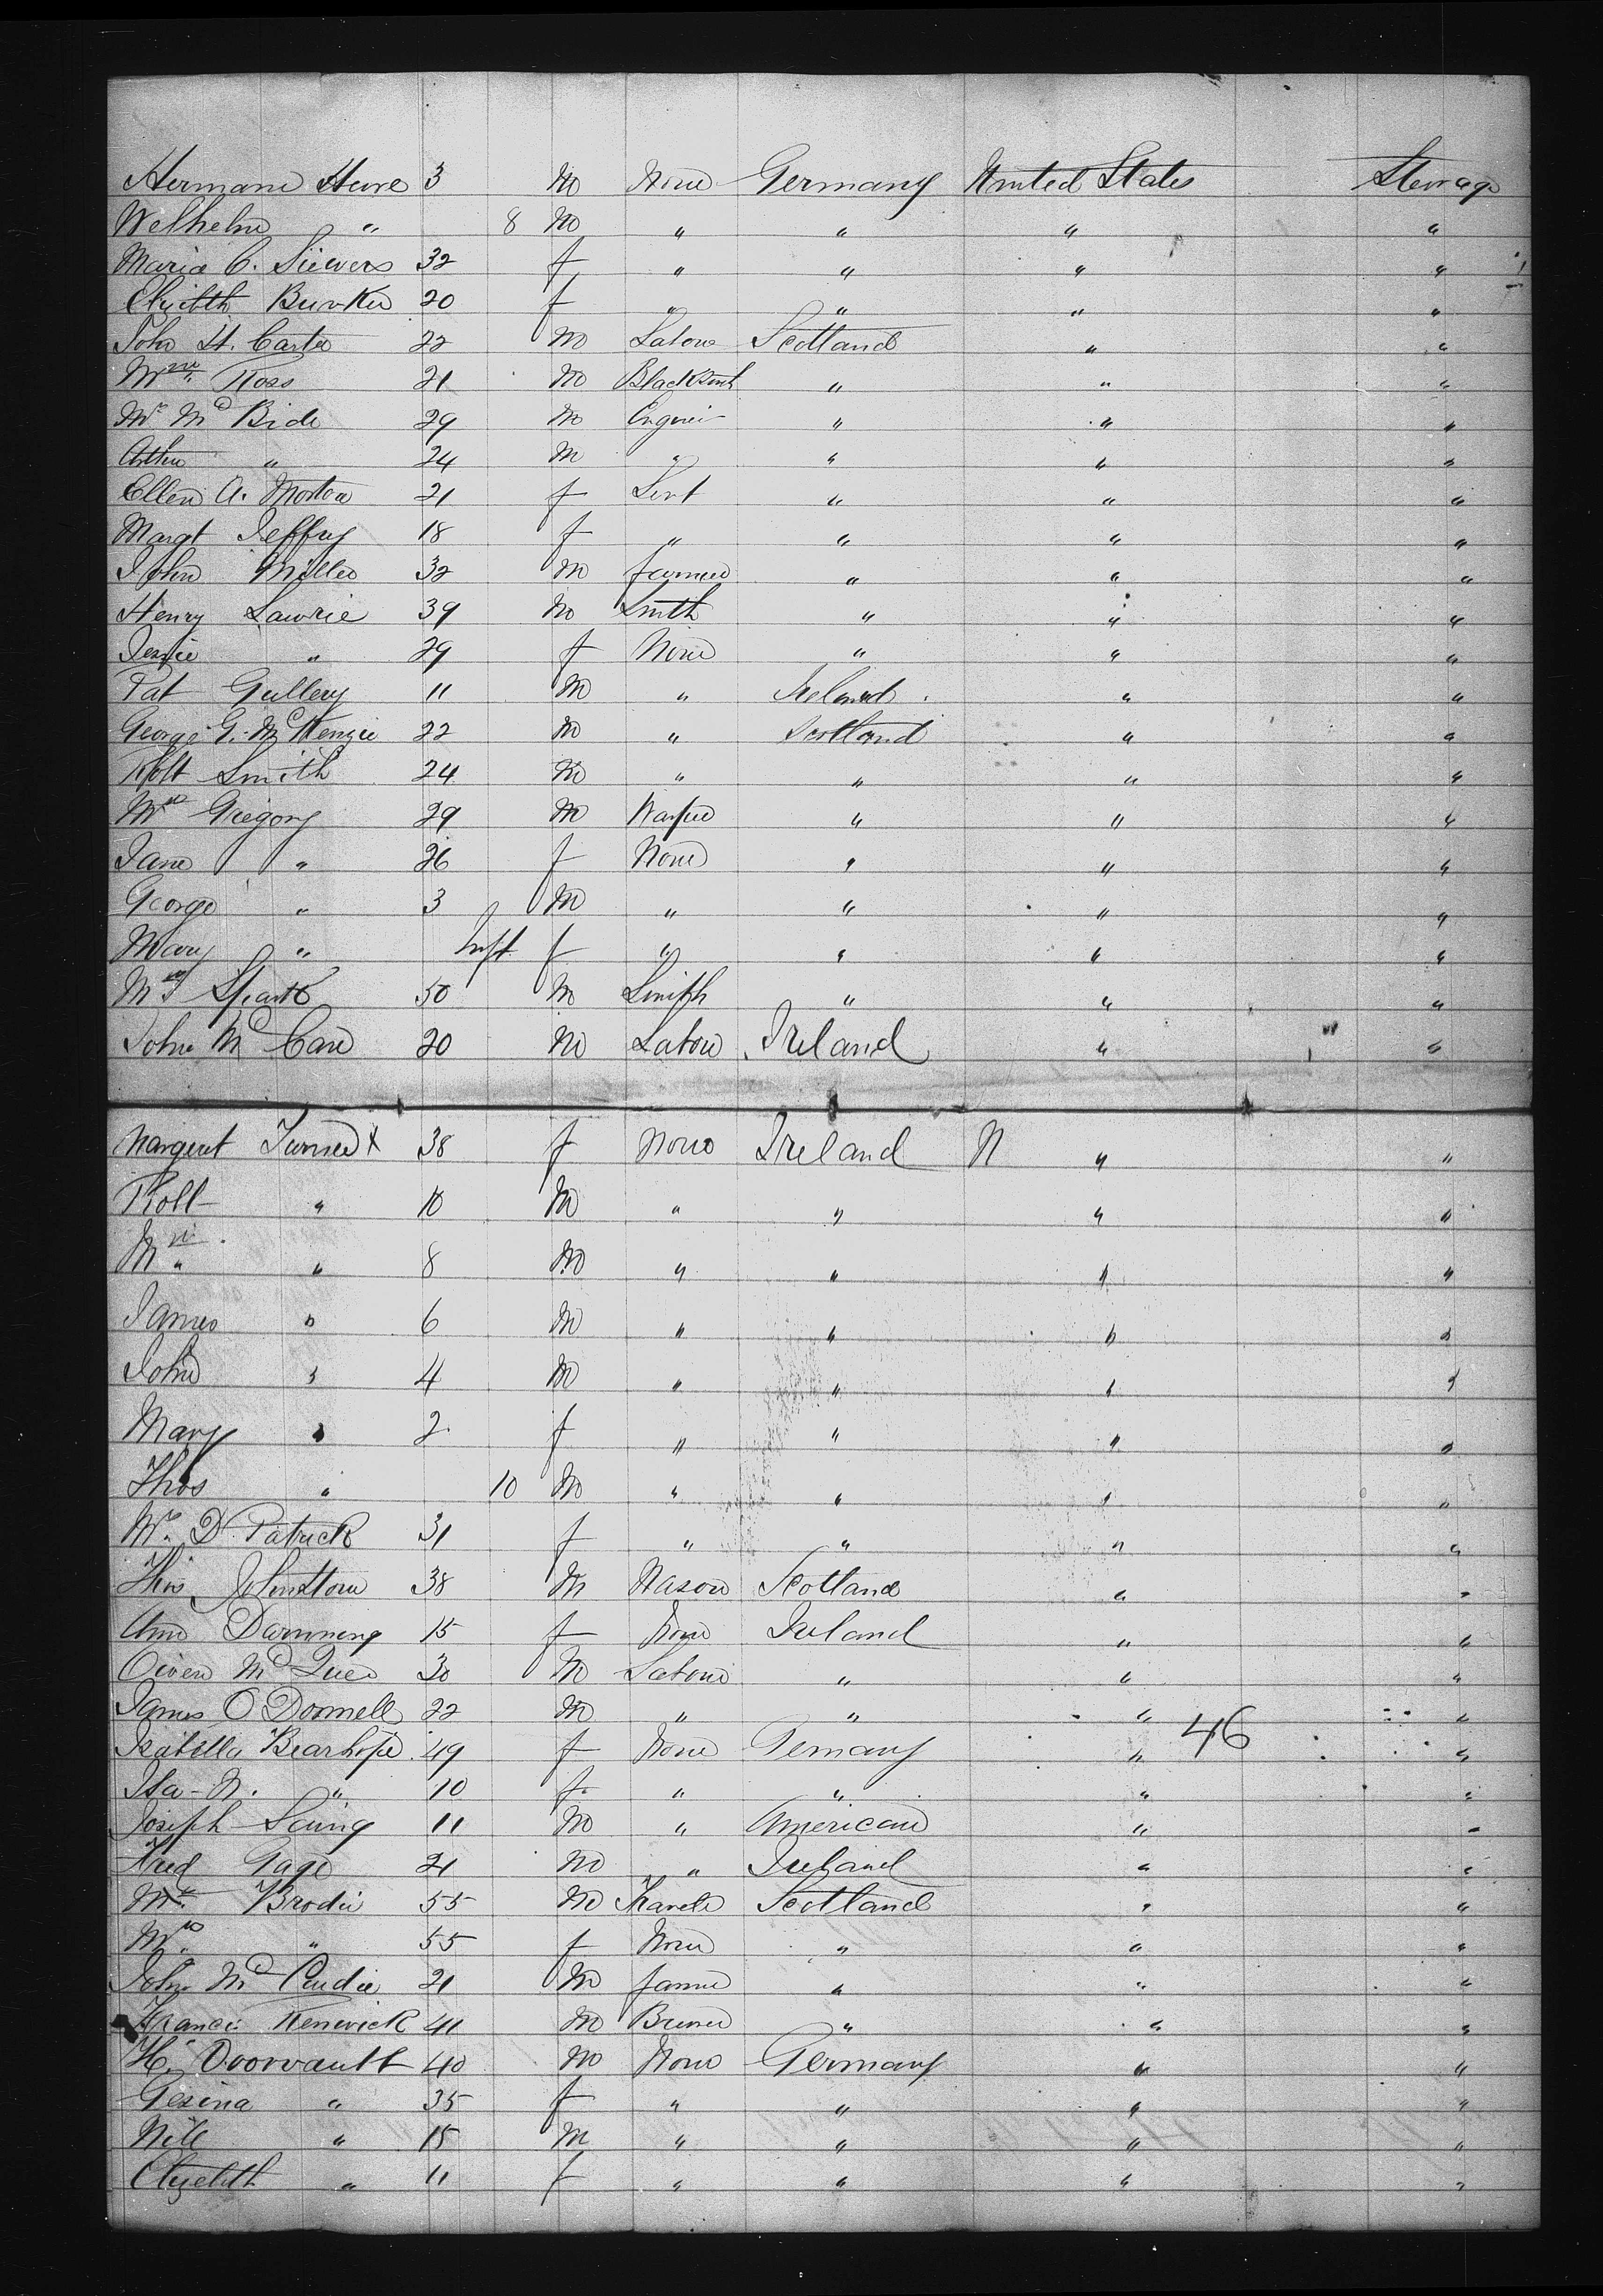 Hermann Heine 3 M None Germany United States Steerage
Welhelm " 8 M " " " "
Maria C. Sievers 32 f " " " "
Elizibth Bunker 20 f " " " "
John H. Carter 22 M Labour Scotland " "
Wm Ross 21 M Blacksmth " " "
Mr McBide 29 M Engineer " " "
Arthur " 24 M " " " "
Ellen A. Morton 21 f Servt " " "
Margt Jeffrey 18 f " " " "
John Miller 32 M farmer " " "
Henry Lawrie 39 M Smith " " "
Jessie " 29 f None " " "
Pat Gullery 11 M " Ireland " "
George G. McKenzie 22 M " Scotland " "
Robt Smith 24 M " " " "
Wm Gregory 29 M " " "
Jane " 26 f None " " "
George " 3 M " " " "
Mary " Inft f " " " "
50 M Smith " " "
John McCan 20 M Labour Ireland " "
Margeret Turner X 38 f None Ireland N " "
Robt " 10 M " " " "
Wm " 8 M " " " "
James " 6 M " " " "
John " 4 M " " " "
Mary " 2 f " " " "
Thos " 10 M " " " "
Mrs D. Patrick 31 f " " " "
Thos Johnston 38 M Mason Scotland " "
Ann 15 f None Ireland " "
Owen 30 M Labour " " "
James O Donnell 22 M " " " "
46
Isabella Bearhope 49 f None Germany " "
Isa - N. " 10 f " " " "
Joseph Laing 11 M " American " "
Fred Gage 21 M " Ireland " "
Mr Brodie 55 M Scotland " "
Mrs " 55 f None " " "
John 21 M farmer " " "
Francis Renwick 41 M " " "
H. Doorvault 40 M None Germany " "
Gesina " 35 f " " " "
Will " 15 M " " " "
Elizebth " 11 f " " " "